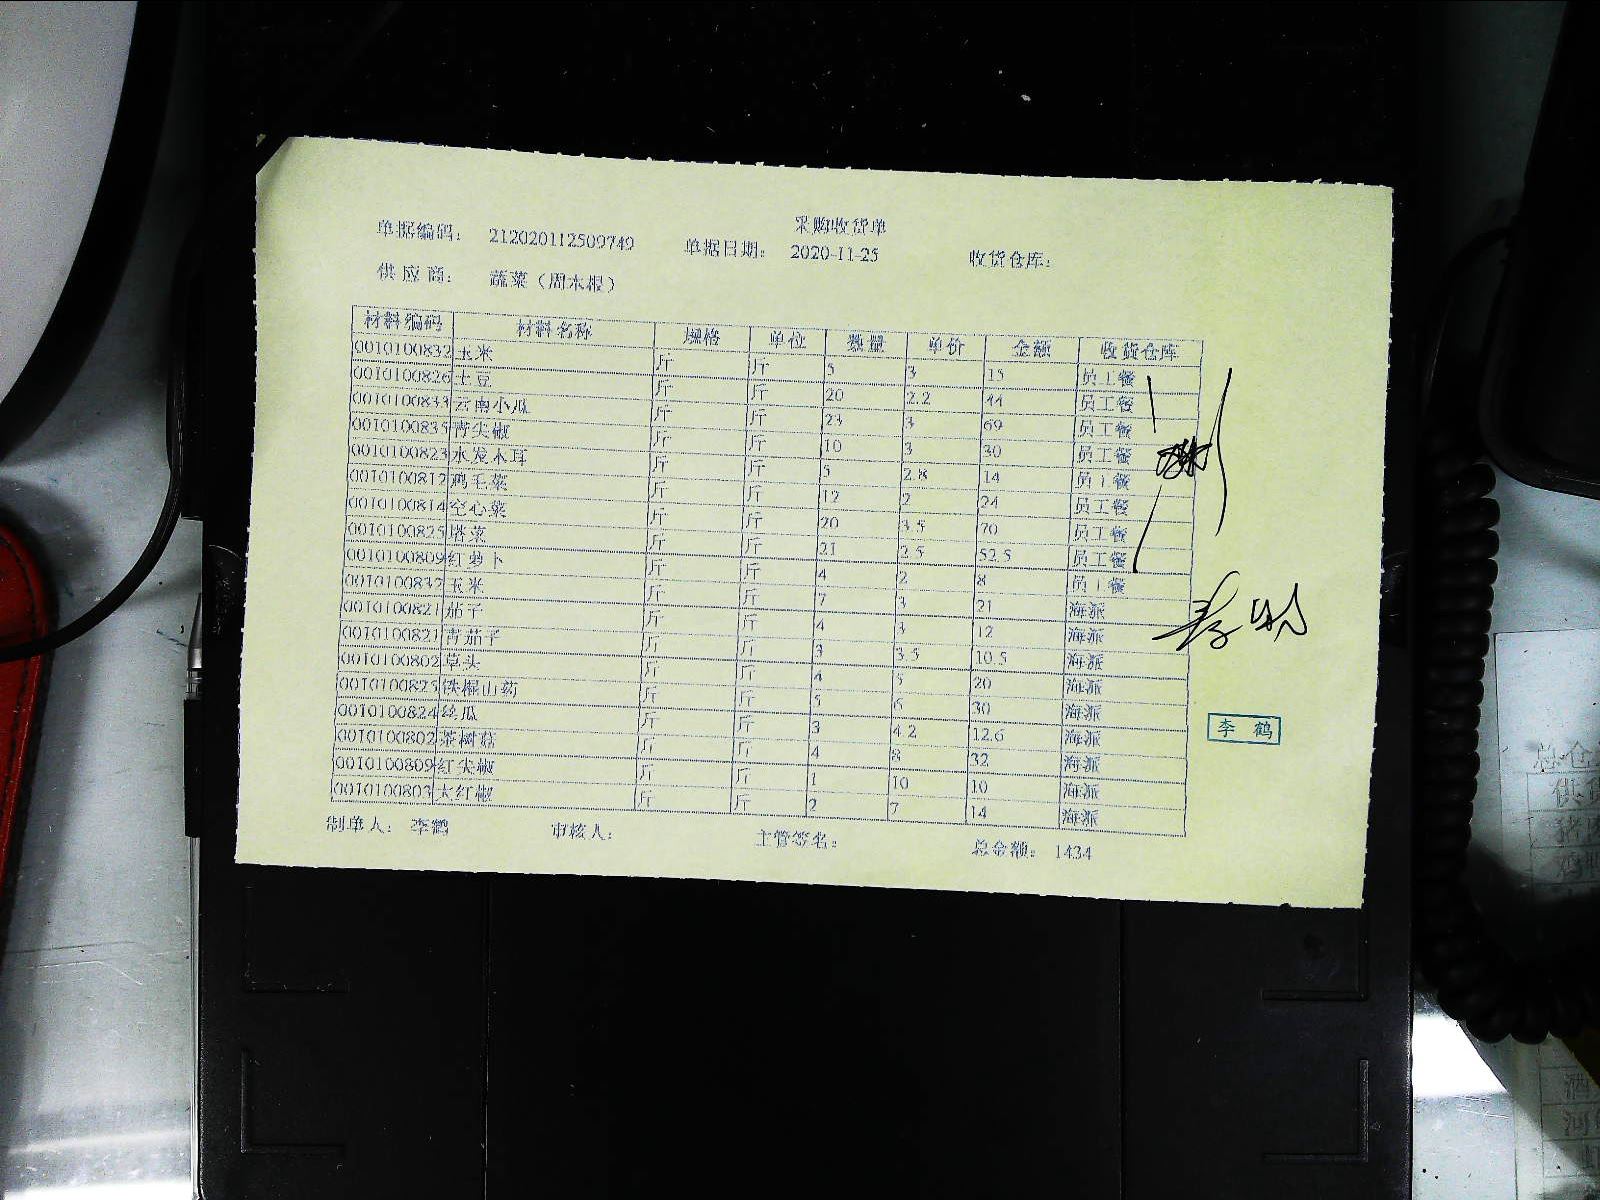 采购收货单
单据编码： 212020112509749 单据日期： 2020-11-25 收货仓库：
供应商： 蔬菜（周木根）
材料编码 材料名称 规格 单位 数量 单价 金额 收货仓库
0010100832 玉米 斤 斤 5 3 15 员工餐
0010100826 土豆 斤 斤 20 2.2 44 员工餐
0010100833 云南小瓜 斤 斤 23 3 69 员工餐
0010100835 青尖椒 斤 斤 10 3 30 员工餐
0010100823 水发木耳 斤 斤 5 2.8 14 员工餐
0010100812 鸡毛菜 斤 斤 12 2 24 员工餐
0010100814 空心菜 斤 斤 20 3.5 70 员工餐
0010100825 塔菜 斤 斤 21 2.5 52.5 员工餐
0010100809 红萝卜 斤 斤 4 2 8 员工餐
0010100832 玉米 斤 斤 7 3 21 海派
0010100821 茄子 斤 斤 4 3 12 海派
0010100821 青茄子 斤 斤 3 3.5 10.5 海派
0010100802 草头 斤 斤 4 5 20 海派
0010100825 铁棍山药 斤 斤 5 6 30 海派
0010100824 丝瓜 斤 斤 3 4.2 12.6 海派
0010100802 茶树菇 斤 斤 4 8 32 海派
0010100809 红尖椒 斤 斤 1 10 10 海派
0010100803 大红椒 斤 斤 2 7 14 海派
李 鹤
制单人： 李鹤 审核人： 主管签名： 总金额： 1434